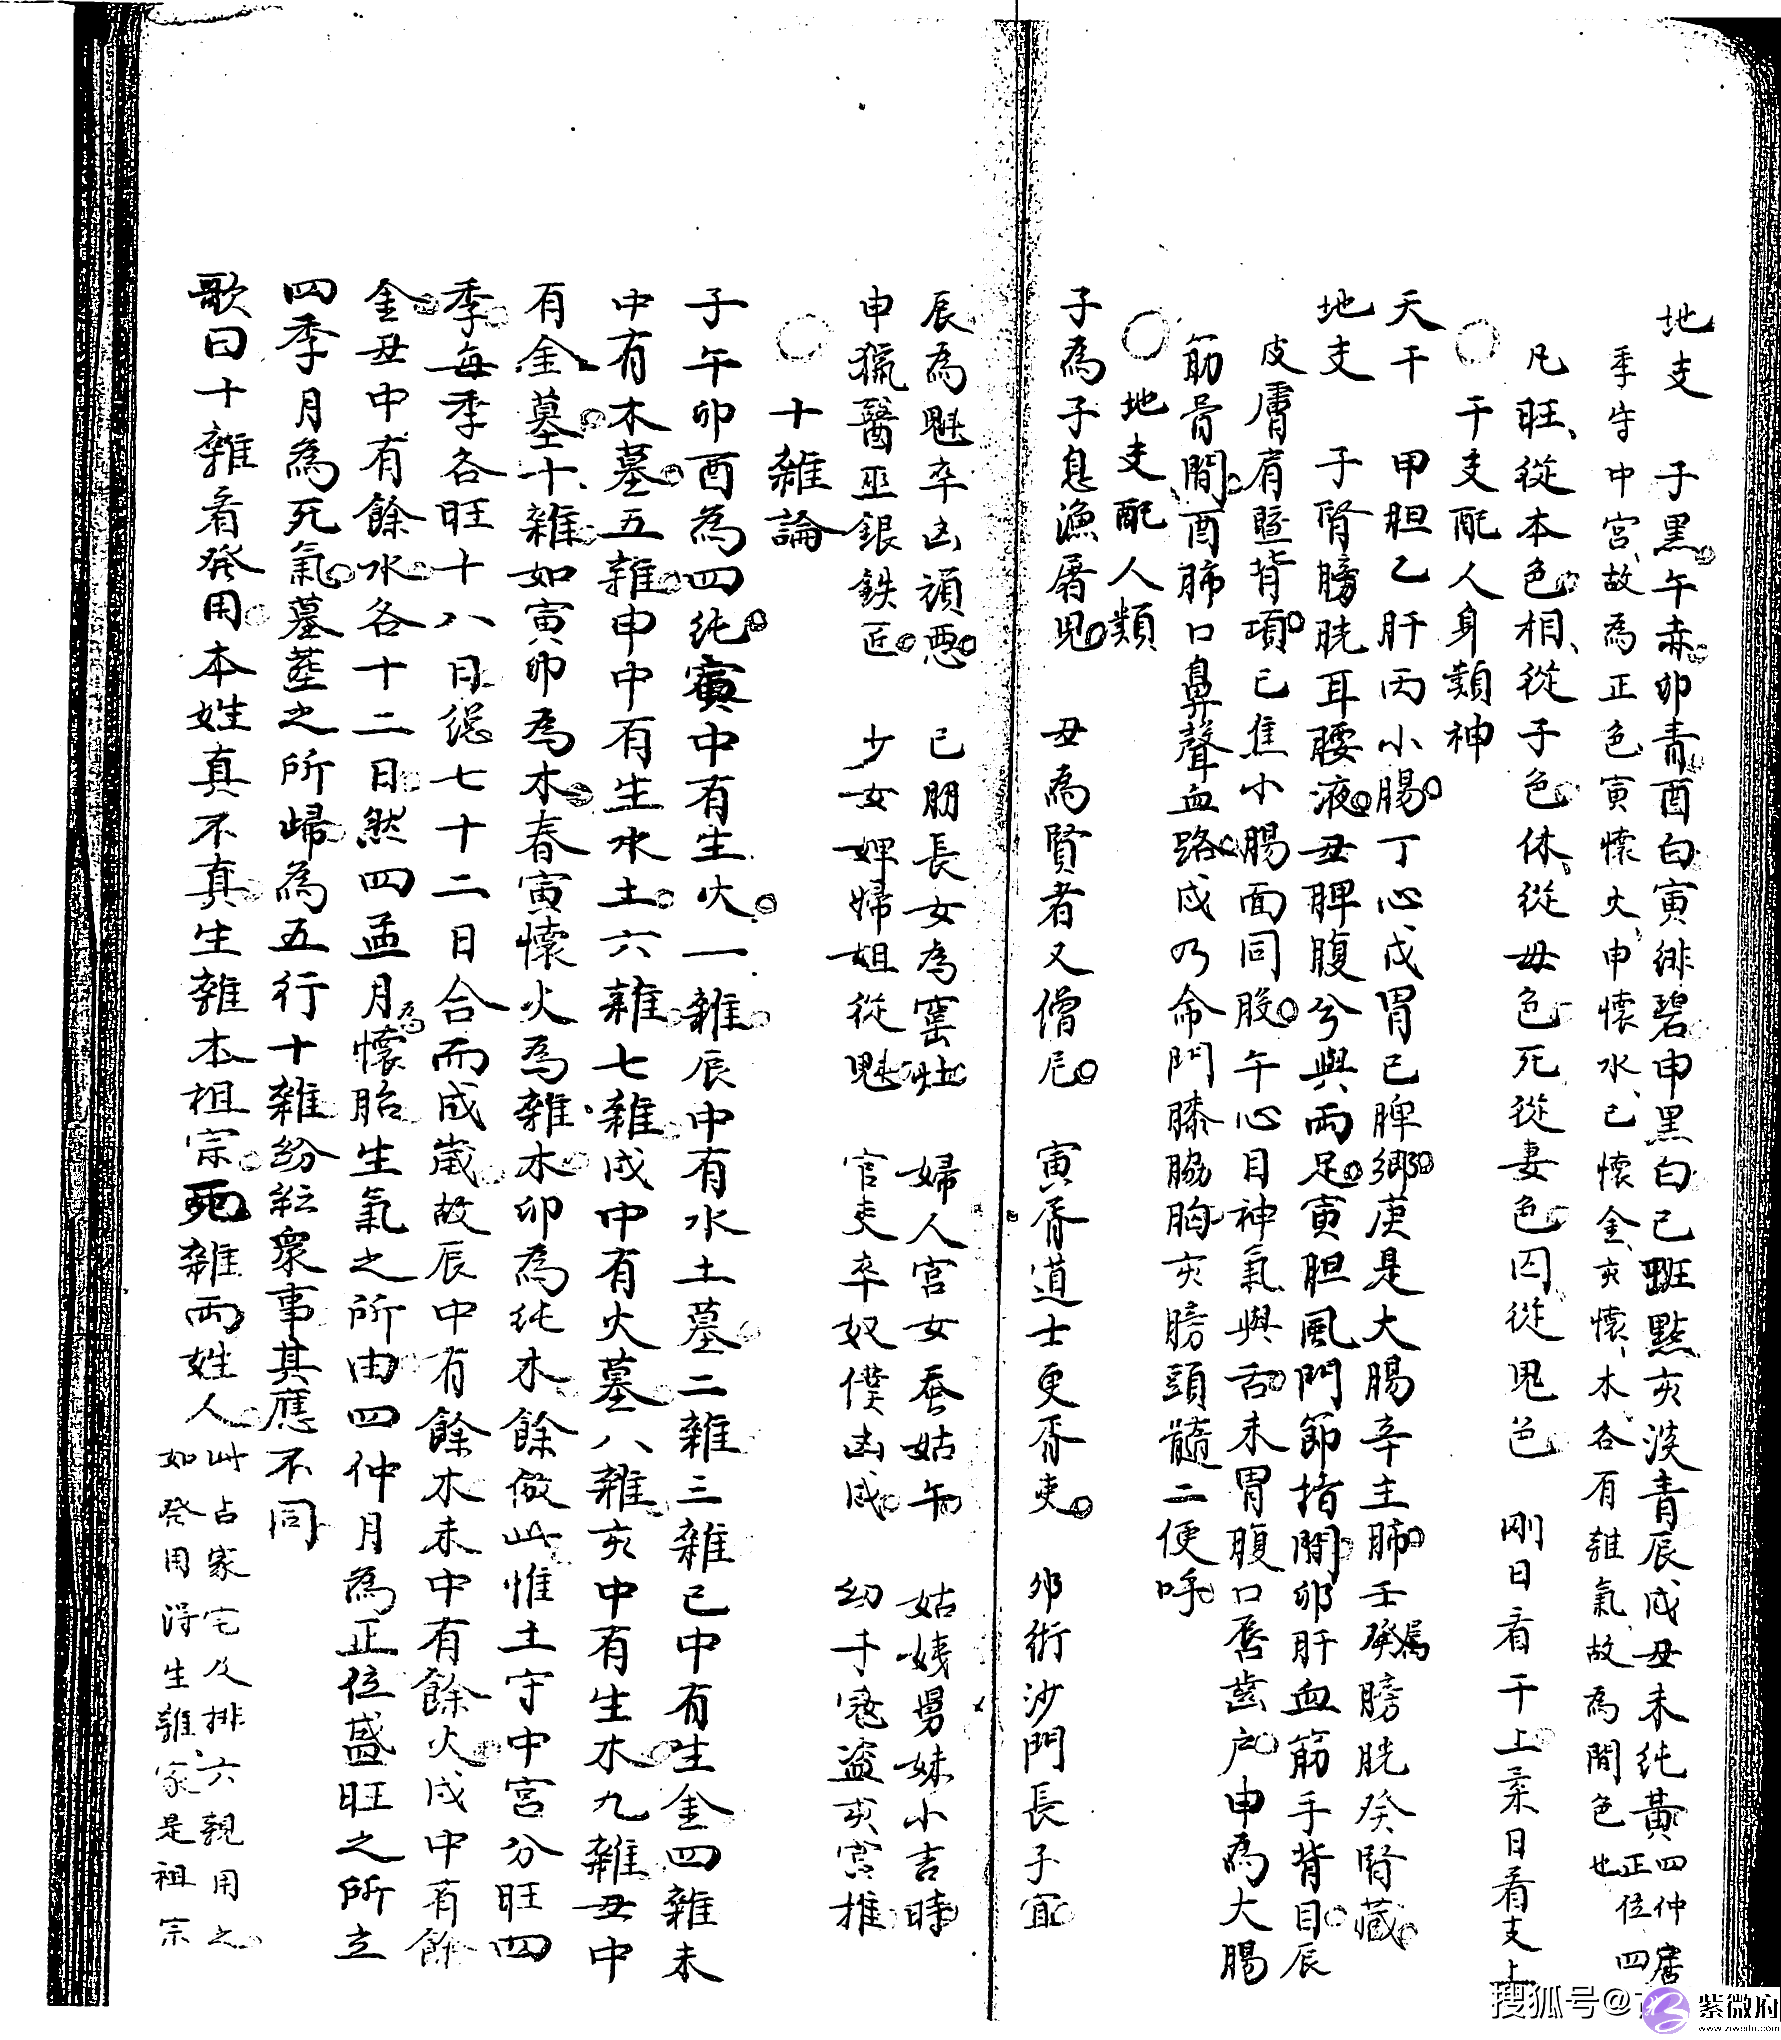 地支　子黑午赤卯青酉白寅緋碧申黑白巳斑點亥淡青辰戌丑未純黃四仲居正位四
季守中宮故為正色寅懷火申懷水巳懷金亥懷木各有雜氣故為間色也
凡旺從本色相從子色休從母色死從妻色囚從鬼色　剛日看干上柔日看支上
干支配人身類神
天干　甲胆乙肝丙小腸丁心戊胃己脾鄉庚是大腸辛主肺壬屬膀胱癸腎藏
地支　子腎膀胱耳腰液丑脾腹兮與兩足寅胆風門節指間卯肝血筋手背目辰
皮膚肩背項巳焦小腸面同股午心目神氣與舌未胃腹口唇齒户申為大腸
筋骨間酉肺口鼻聲血路戌乃命門膝脇胸亥膀頭髓二便呼
地支配人類
子為子息漁屠兒　丑為賢者又僧尼　寅胥道士更胥吏　卯術沙門長子宜
辰為魁卒凶頑惡　巳朋長女為窰灶　婦人宮女蚕姑午　姑姨舅妹小吉時
申獵醫巫銀鉄匠　少女婢婦姐從魁　官吏卒奴僕凶戌　幼子寇盜亥宮推
十雜論
子午卯酉為四純寅中有生火一雜辰中有水土墓二雜三雜巳中有生金四雜未
中有木墓五雜申中有生水土六雜七雜戌中有火墓八雜亥中有生木九雜丑中
有金墓十雜如寅卯為木春寅懷火為雜木卯為純木餘倣此惟土守中宮分旺四
季每季各旺十八日總七十二日合而成歲故辰中有餘木未中有餘火戌中有餘
金丑中有餘水各十二日然四孟月為懷胎生氣之所由四仲月為正位盛旺之所立
四季月為死氣墓塟之所歸為五行十雜紛紜衆事其應不同
歌曰十雜看發用本姓真不真生雜本祖宗死雜兩姓人此占家宅及排六親用之
如發用得生雜家是祖宗
搜狐号@
紫微府